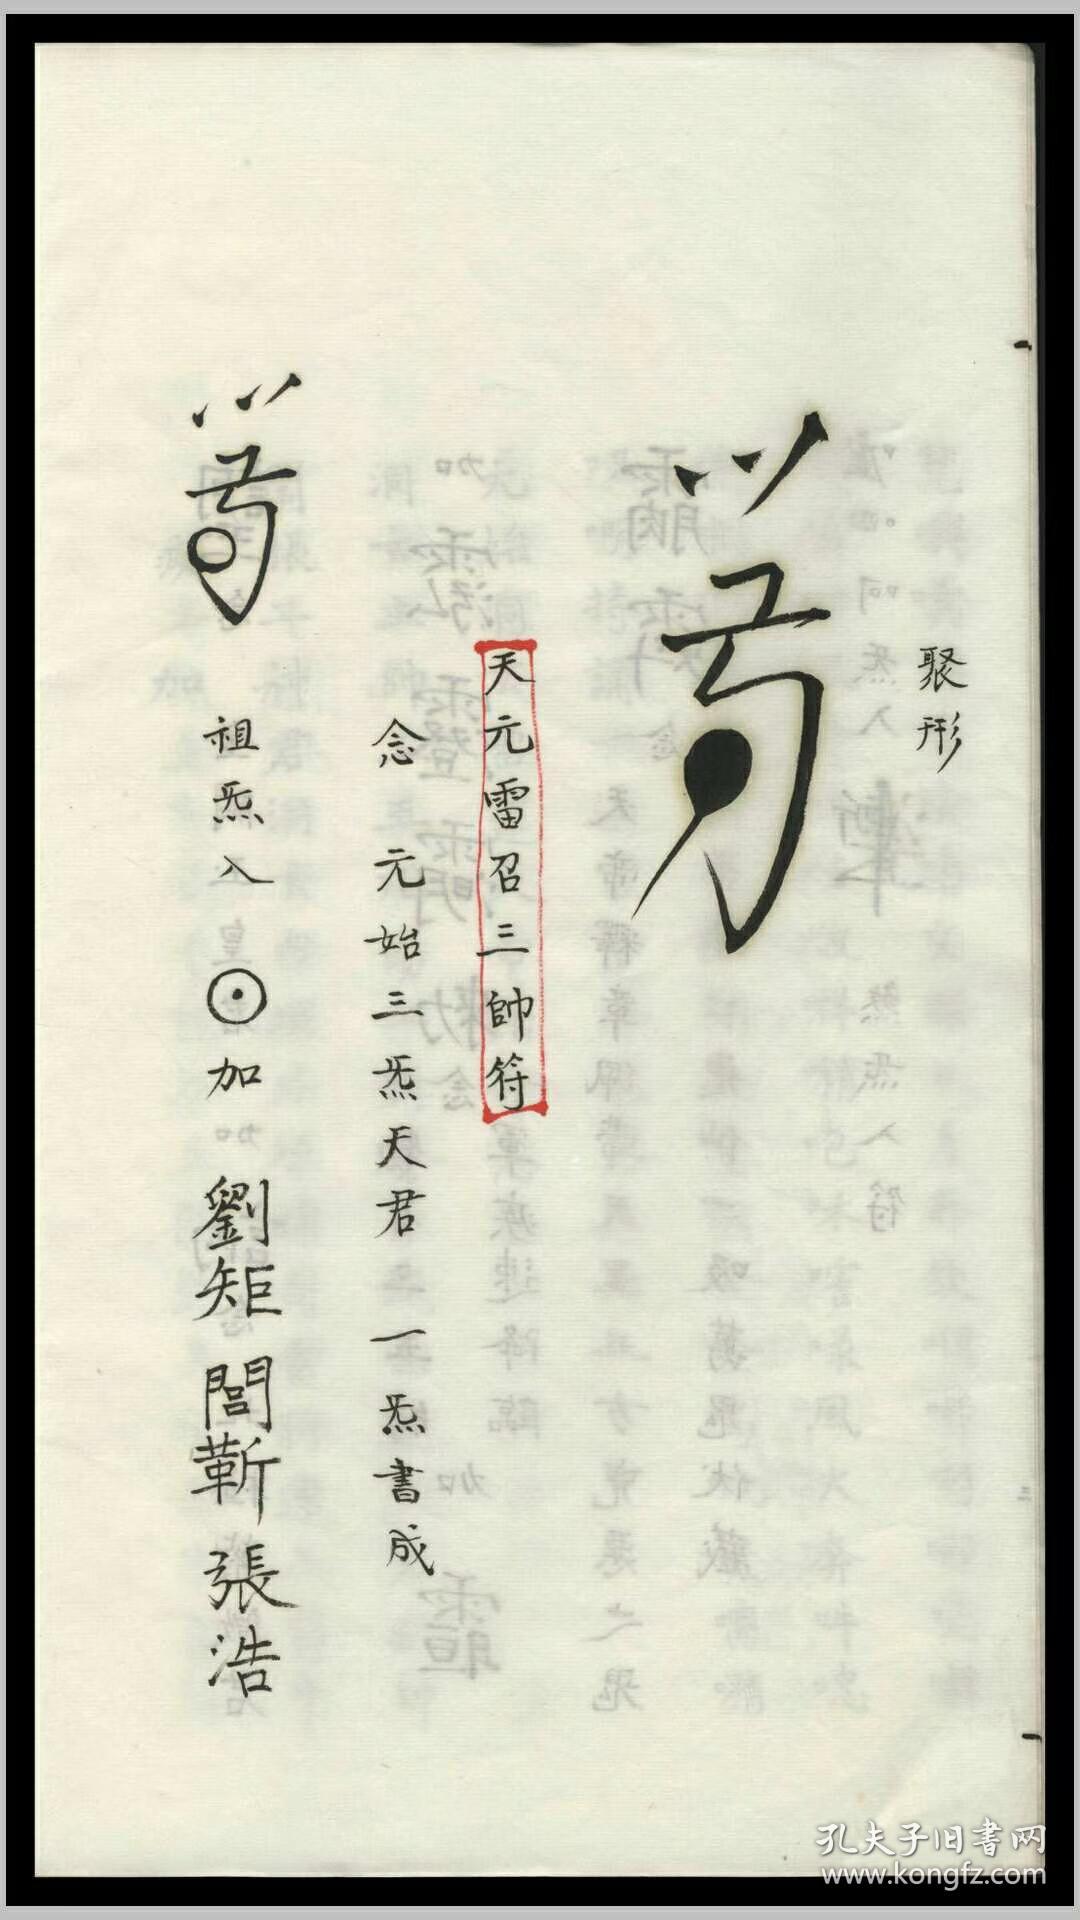 聚形
天元雷召三帥符
念 元始三炁天君 一炁書成
祖炁入 加 劉矩 閻蘄 張浩
孔夫子旧書网
www.kongfz.com